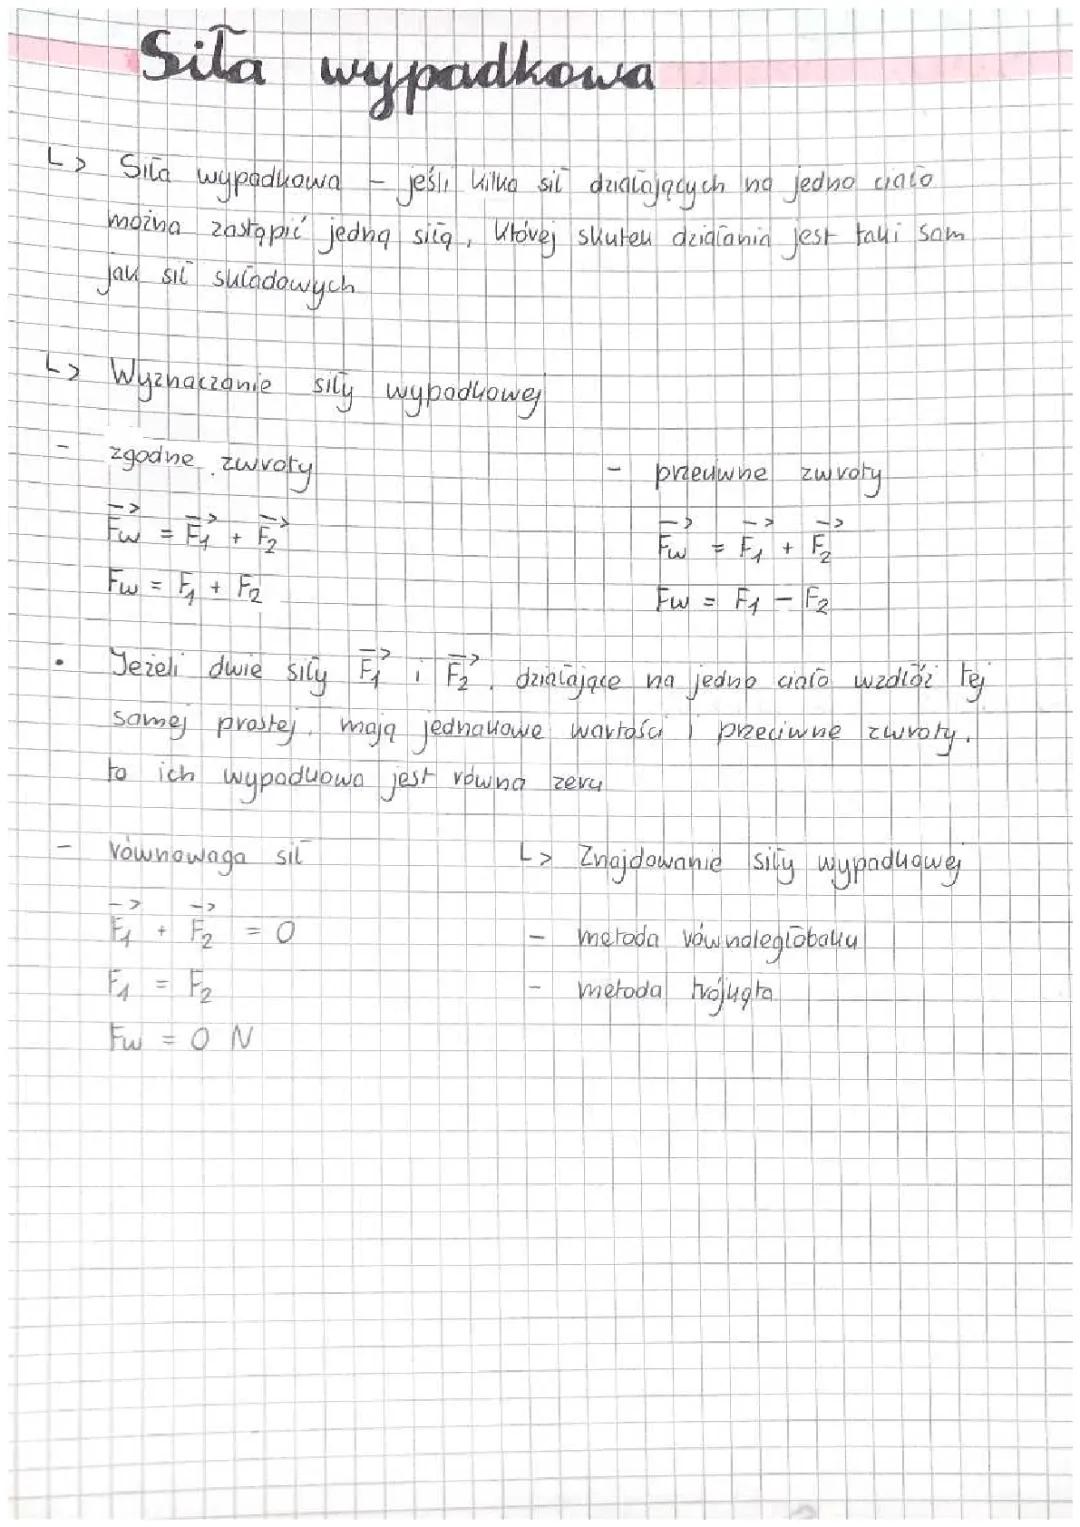 Siła wypadkowa
↳ Siła wypadkowa - jeśli kilka sił działających na jedno ciało
można zastąpić jedną siłą, której skutek działania jest taki sam
jak sił składowych
↳ Wyznaczanie siły wypadkowej
- zgodne zwroty
F⃗w = F⃗₁ + F⃗₂
Fw = F₁ + F₂
- przeciwne zwroty
F⃗w = F⃗₁ + F⃗₂
Fw = F₁ - F₂
• Jeżeli dwie siły F⃗₁ i F⃗₂, działające na jedno ciało wzdłóż tej
samej prostej, mają jednakowe wartości i przeciwne zwroty,
to ich wypadkowa jest równa zeru
- równowaga sił
F⃗₁ + F⃗₂ = 0
F₁ = F₂
Fw = 0 N
↳ Znajdowanie siły wypadkowej
- metoda równoległoboku
- metoda trójkąta